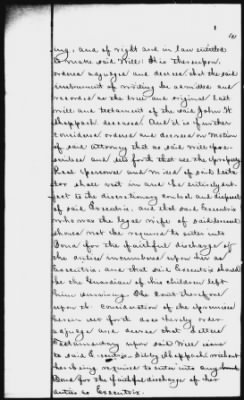 ing, and of right and in law entitled
to make said Will. It is thereupon
ordered adjudged and decreed that the said
instrument of writing be admitted and
recorded as the true and original last
will and testament of the said John H
Sheppard deceased. And it is further
considered ordered and decreed on Motion
of said attorney that as said Will pro-
vides and sets forth that all the property
Real personal and mixed of said testa-
tor shall vest in and be entirely sub-
ject to the discretionary control and disposal
of said Executrix, and that said Executrix
who was the legal wife of said decedent
should not be required to enter into
Bond for the faithful discharge of
the duties incumbent upon her as
Executrix. and that said Executrix should
be the Guardian of his children left
him surviving. The Court therefore
upon the consideration of the premises
herein set forth does hereby order
adjudge and decree that Letters
Testamentary upon said Will issue
to said Executrix Sibby Sheppard without
her being required to enter into any
Bond for the faithful discharge of her
duties as Executrix.